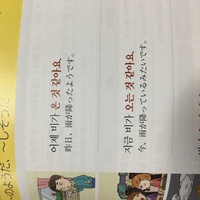 のようだ、~しそうだ
어제 비가 온 것 같아요.
昨日、雨が降ったようです。
지금 비가 오는 것 같아요.
今、雨が降っているみたいです。